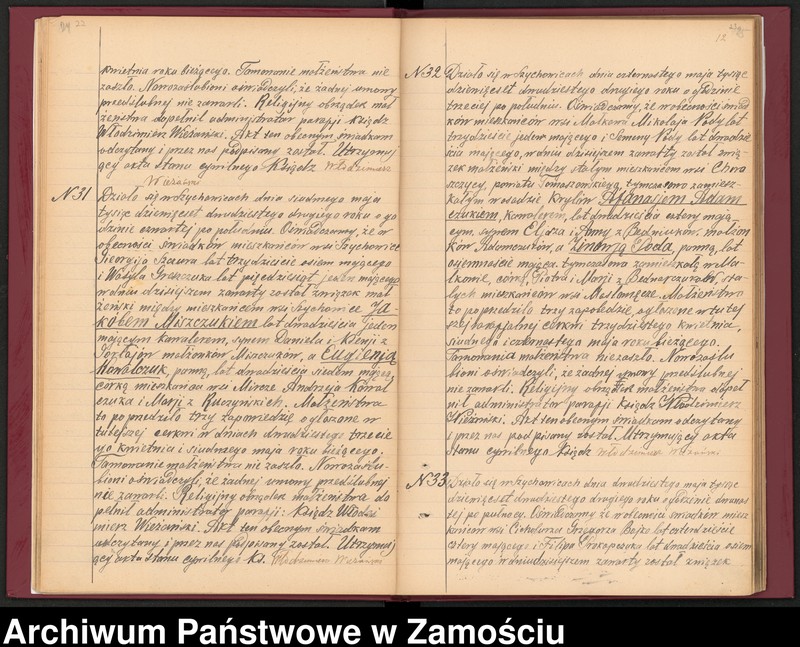 kwietnia roku bieżącego. Tamowanie małżeństwa nie
zaszło. Nowozaślubieni oświadczyli, że żadnej umowy
przedślubnej nie zawarli. Religijny obrządek mał
żeństwa dopełnił administrator parafji Ksiądz
Włodzimierz Wieżański. Akt ten obecnym świadkom
odczytany i przez nas podpisany został. Utrzymuj
ący akta stanu cywilnego Ksiądz Włodzimierz
Wieżański
N31
Działo się w Szychowicach dnia siudmego maja
tysiąc dziewięcset dwudziestego drugiego roku o go
dzinie czwartej po południu. Oświadczamy, że w
obecności świadków mieszkańców wsi Szychowice
Gieorgija Szaura lat trzydzieście osiem mającego
i Wasyla Greszczuka lat pięćdziesiąt jeden mającego
w dniu dzisiejszem zawarty został związek mał
żeński między mieszkańcem wsi Szychowice Ja-
kóbem Miszczukiem lat dwadzieścia jeden
mającym kawalerem, synem Daniela i Ksenji z
małżonków Miszczuków, a Eugienją
Kowalczuk, panną, lat dwadzieścia siedem mającą,
córką mieszkańca wsi Mircze Andrzeja Kowal
czuka i Marji z Kuczyńskich. Małżeństwo
to poprzedziło trzy zapowiedzie ogłoszone w
tutejszej cerkwi w dniach dwudziestego trzecie
go kwietnia i siudmego maja roku bieżącego.
Tamowanie małżeństwa nie zaszło. Nowozaślu-
bieni oświadczyli, że żadnej umowy przedślubnej
nie zawarli. Religijny obrządek małżeństwa do
pełnił administrator parafji: Ksiądz Włodzi
mierz Wieżański. Akt ten obecnym świadkom
odczytany i przez nas podpisany został. Utrzymuj
ący akta stanu cywilnego Ks. Włodzimierz Wieżański
N32
Działo się w Szychowicach dnia czternastego maja tysiąc
dziewięcset dwudziestego drugiego roku o godzinie
trzeciej po południu. Oświadczamy, że w obecności świad
ków mieszkańców wsi Małkowa Mikołaja Wody lat
trzydzieście jeden mającego i Semena Wody lat dwadzie
ścia mającego, w dniu dzisiejszem zawarty został zwią-
zek małżeński między stałym mieszkańcem wsi Choro
szczycy, powiatu Tomaszowskiego, tymczasowo zamiesz-
kałym w osadzie Kryłów Afanasjem Adam
czukiem, kawalerem, lat dwadzieścia cztery mają
cym, synem Eljasza i Anny z małżon
ków Adamczuków, a Zinowją Słoda, panną, lat
osiemnaście mającą, tymczasowo zamieszkałą w Ma-
łkowie, córką Piotra i Marji z Bednarczuków, sta-
łych mieszkańców wsi Masłomęcz. Małżeństwo
to poprzedziło trzy zapowiedzie, ogłoszone w tutej
szej parafjalnej cerkwi trzydziestego kwietnia,
siudmego i czternastego maja roku bieżącego.
Tamowania małżeństwa nie zaszło. Nowozaślu
bieni oświadczyli, że żadnej umowy przedślubnej
nie zawarli. Religijny obrządek małżeństwa dopeł
nił administrator parafji Ksiądz Włodzimierz
Wieżański. Akt ten obecnym świadkom odczytany
i przez nas podpisany został. Utrzymujący akta
stanu cywilnego Ksiądz Włodzimierz Wieżański
N33
Działo się w Szychowicach dnia dwudziestego maja tysiąc
dziewięcset dwudziestego drugiego roku o godzinie dwunas
tej po północy. Oświadczamy że w obecności świadków miesz
kańców wsi Cichoburz Grzegorza Bojko lat czterdzieście
cztery mającego i Filipa Prokopowka lat dwadzieścia osiem
mającego w dniu dzisiejszem zawarty został związek
Archiwum Państwowe w Zamościu